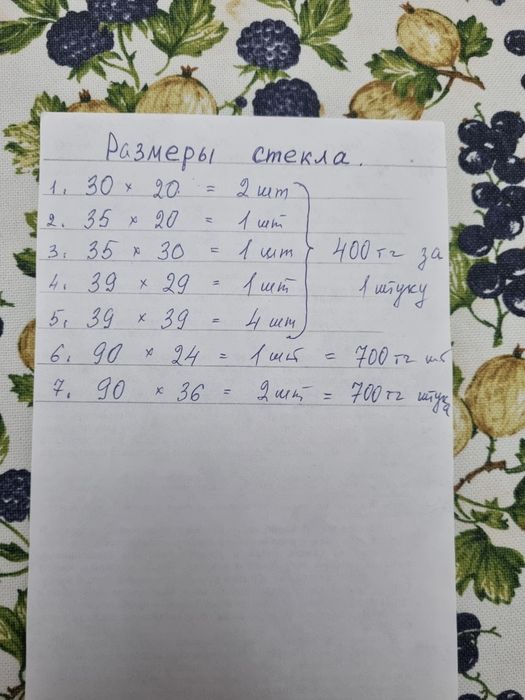 Размеры стекла.
1. 30 × 20 = 2 шт
2. 35 × 20 = 1 шт
3. 35 × 30 = 1 шт 400 тг за
4. 39 × 29 = 1 шт 1 штуку
5. 39 × 39 = 4 шт
6. 90 × 24 = 1 шт = 700 тг шт
7. 90 × 36 = 2 шт = 700 тг штука